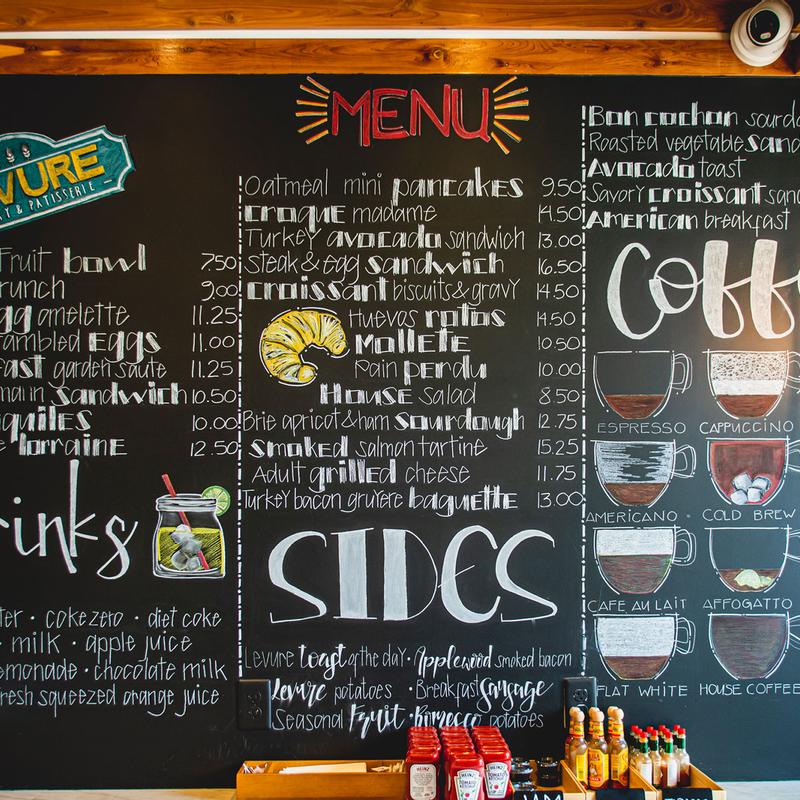 VURE
Y & PATISSERIE
Fruit bowl 7.50
runch 9.00
gg omelette 11.25
ambled eggs 11.00
fast garden saute 11.25
main sandwich 10.50
quiles 10.00
lorraine 12.50
rinks
ter · coke zero · diet coke
· milk · apple juice
emonade · chocolate milk
fresh squeezed orange juice
MENU
Oatmeal mini pancakes 9.50
croque madame 14.50
Turkey avocado sandwich 13.00
steak & egg sandwich 16.50
croissant biscuits & gravy 14.50
Huevos rotos 14.50
Mollete 10.50
Pain perdu 10.00
House salad 8.50
Brie apricot & ham sourdough 12.75
smoked salmon tartine 15.25
Adult grilled cheese 11.75
Turkey bacon gruyere baguette 13.00
SIDES
Levure toast of the day · Applewood smoked bacon
Levure potatoes · Breakfast sausage
Seasonal Fruit · Romesco potatoes
Bon cochon sourdo
Roasted vegetable sand
Avocado toast
Savory croissant sand
American breakfast
Coff
ESPRESSO CAPPUCCINO
AMERICANO · COLD BREW
CAFE AU LAIT AFFOGATTO
FLAT WHITE HOUSE COFFEE
HEINZ
TOMATO KETCHUP
JAM